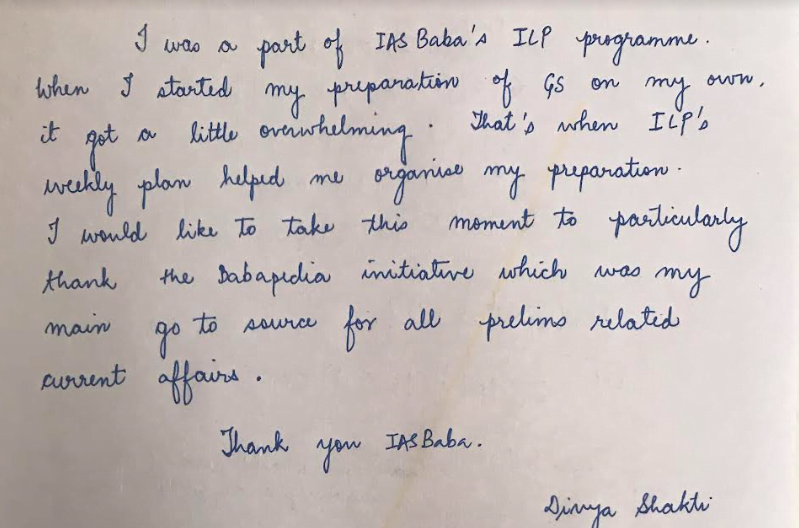 I was a part of IAS Baba's ILP programme.
When I started my preparation of GS on my own,
it got a little overwhelming. That's when ILP's
weekly plan helped me organise my preparation.
I would like to take this moment to particularly
thank the Babapedia initiative which was my
main go to source for all prelims related
current affairs.
Thank you IASBaba.
Divya Shakti